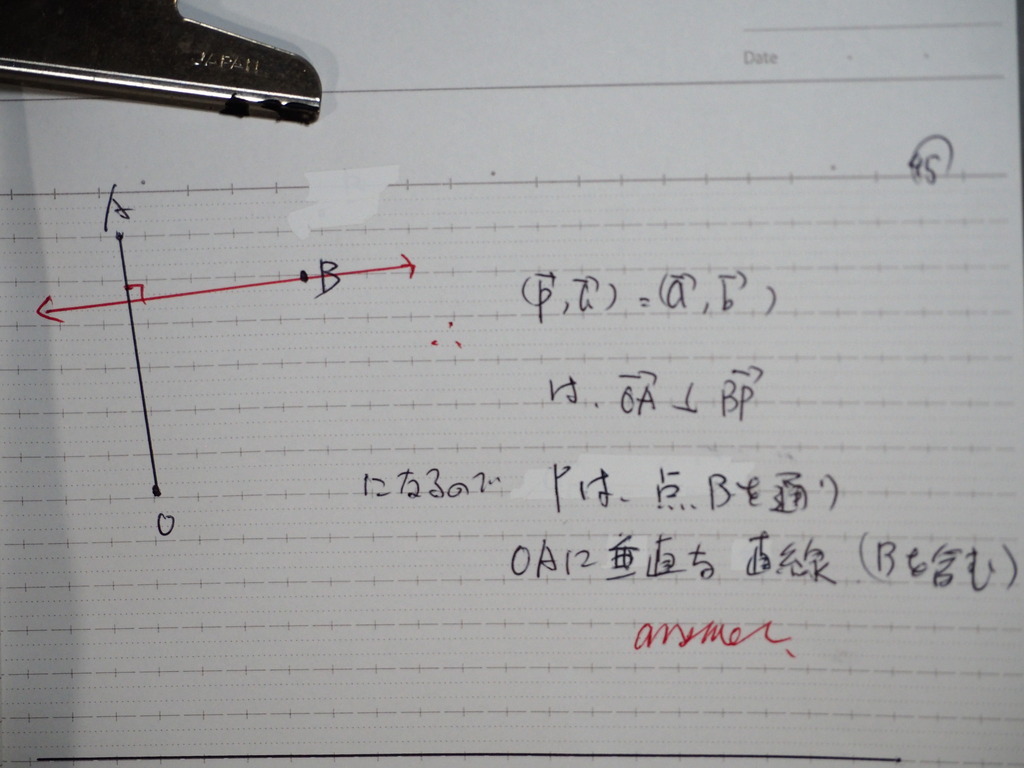 JAPAN
Date
45
A
B
O
(p⃗, a⃗) = (a⃗, b⃗)
∴
は、OA⃗ ⊥ BP⃗
になるので Pは、点Bを通り
OAに垂直な 直線 (Bを含む)
answer